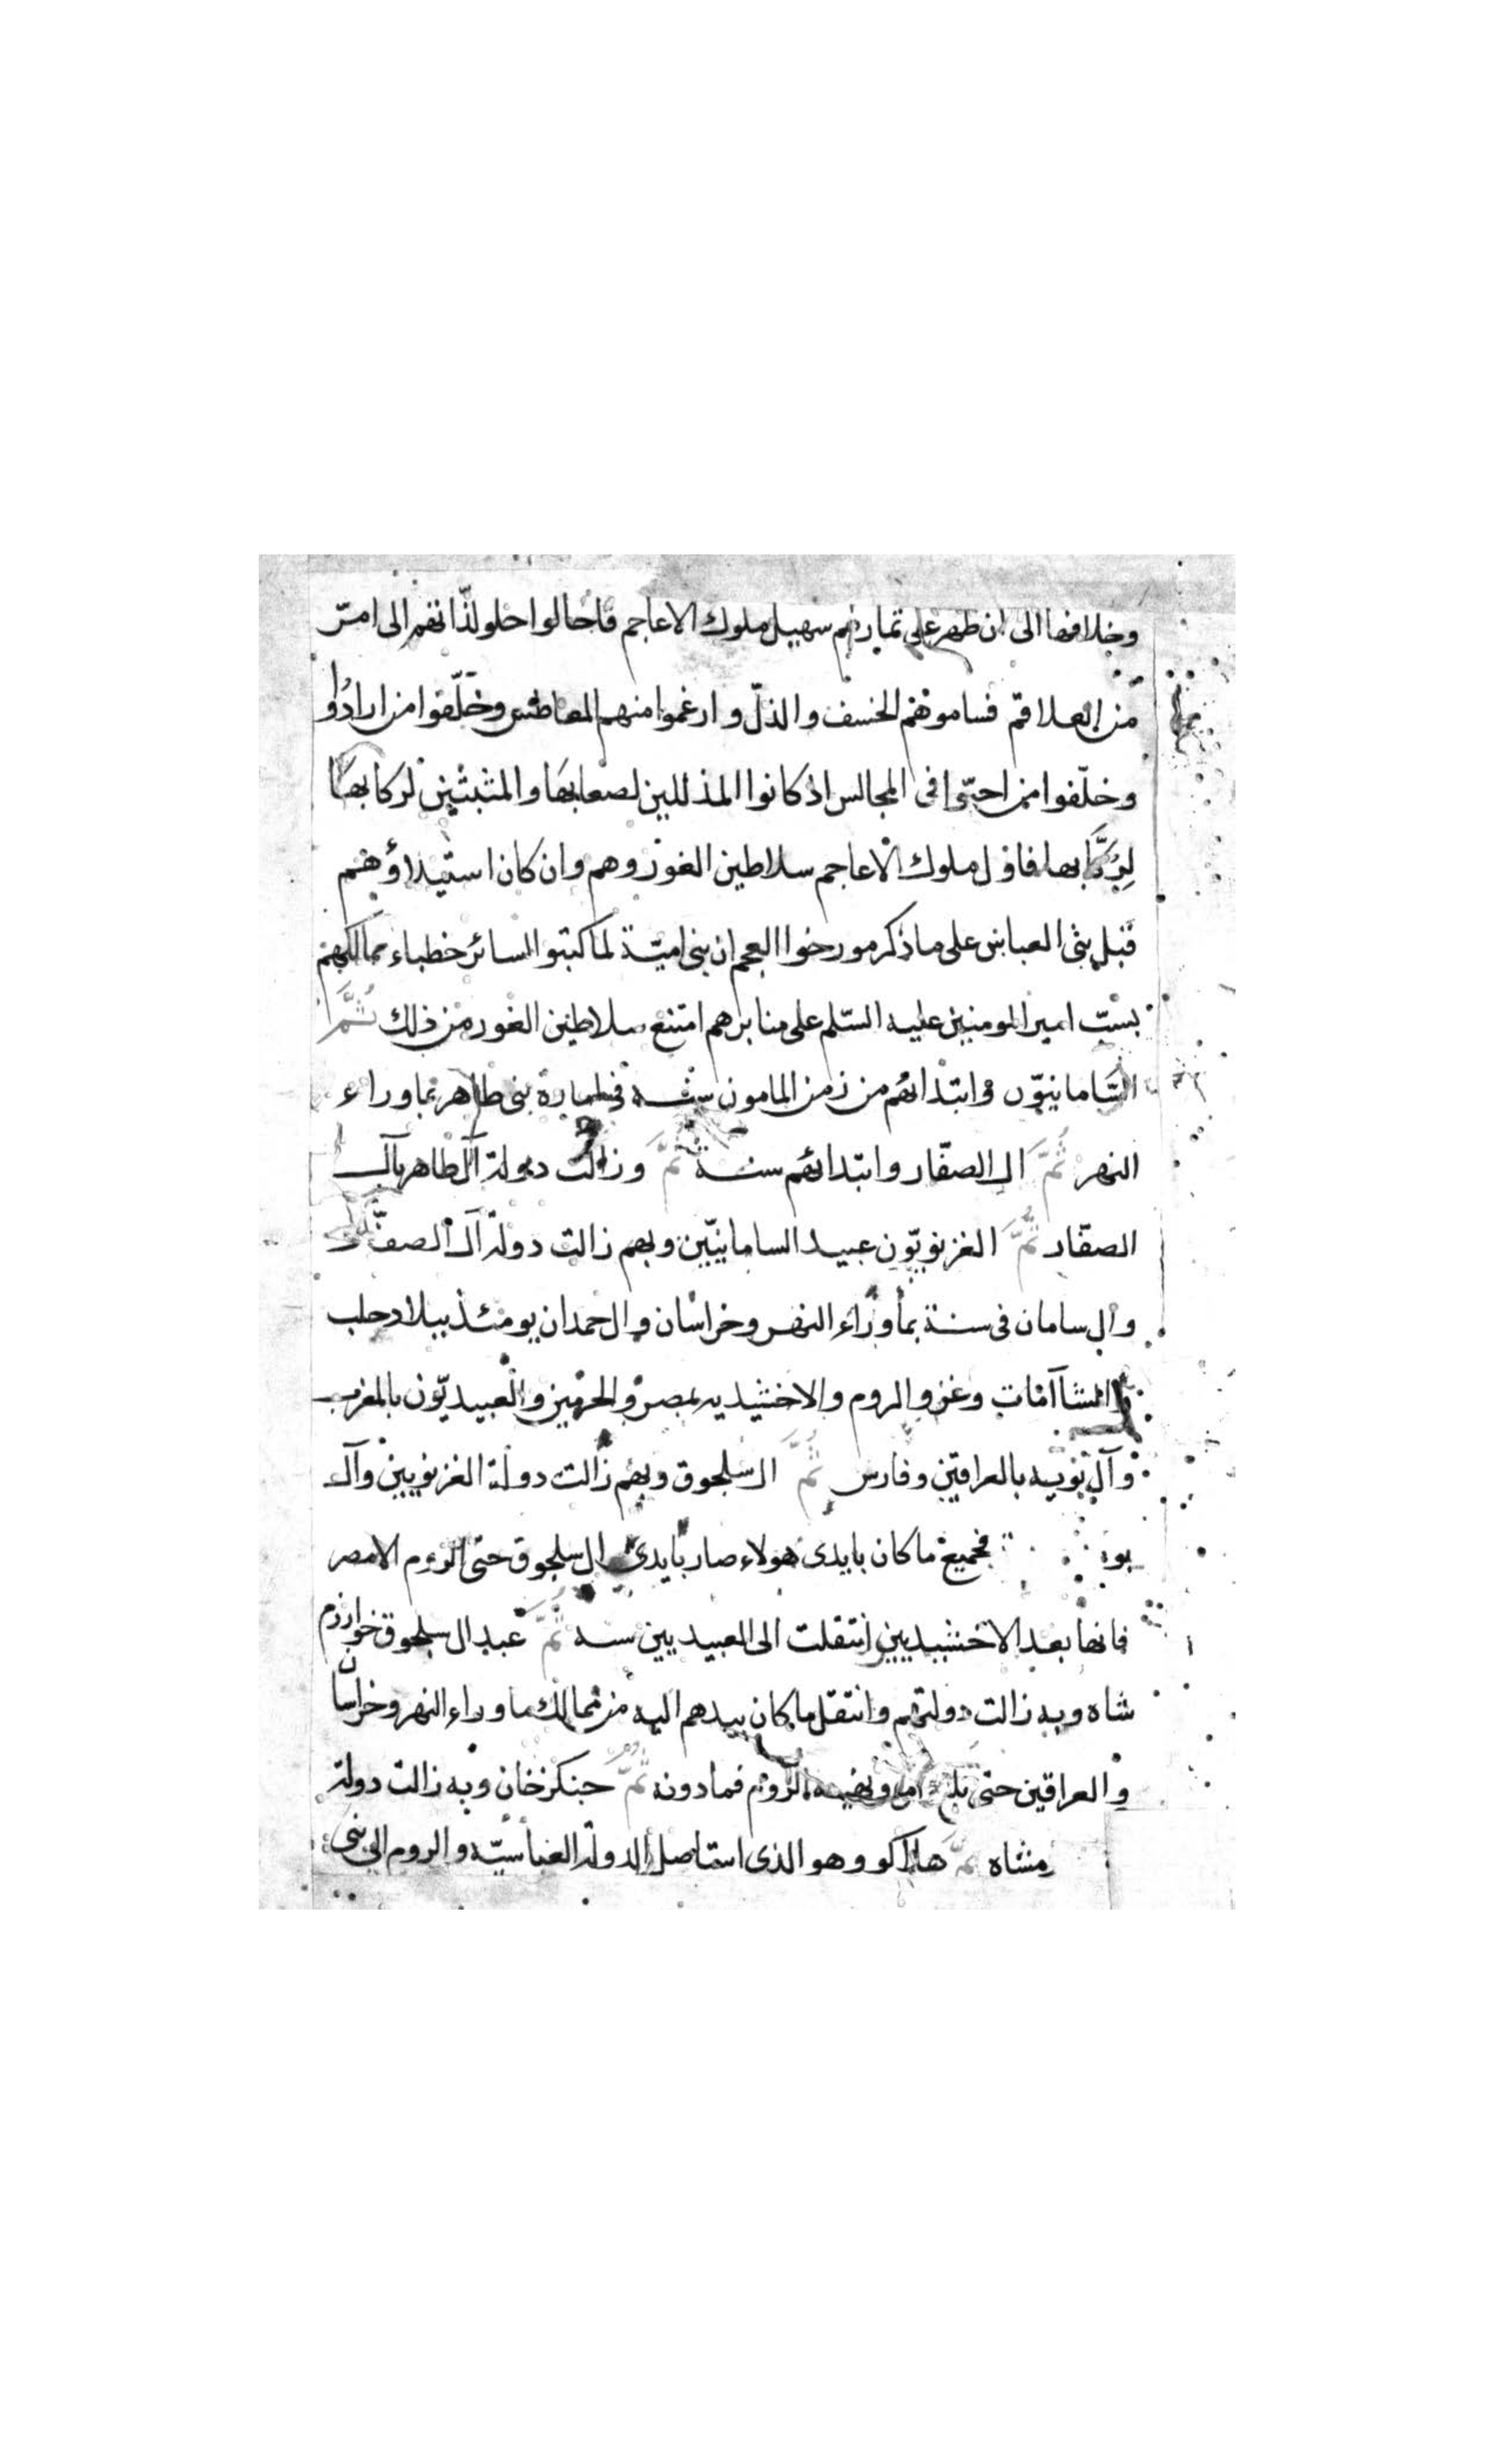 وخلافها الى ان ظهر على سهيل ملوك الاعاجم فاحالوا حلو لذّاتهم الى امرّ
من العلاقم فساموهم الخسف والذلّ وارغموا منهم المعاطس وخلّفوا من ارادُوا
وخلّفوا من احبّوا فى المجالس اذ كانوا المذللين لصعابها والمثبتين لركابها
لِرُكّابها فاول ملوك الاعاجم سلاطين الغور وهم وان كان استيلاؤهم
قبل بنى العباس على ما ذكر مورخوا العجم ان بنى اميّة لما كتبوا لسائر خطباء ممالكهم
بسبّ امير المومنين عليه السّلم على منابرهم امتنع سلاطين الغور من ذلك ثُمَّ
السّامانيّون وابتدائهم من زمن المامون سنة فى امارة بنى طاهر بماوراء
النهر ثُمَّ ال الصفّار وابتدائهم سنة ثمَّ وزالت دولة آل طاهر بآل
الصفّار ثُمَّ الغزنويّون عبيد السامانيّين وبهم زالت دولة آل الصفّار
وال سامان فى سنة بماوراء النهر وخراسان وال حمدان يومئذ ببلاد حلب
والشاآمات وغزو الروم والاخشيديه بمصر والحرمين والعبيديّون بالمغرب
وآل بويه بالعراقين وفارس ثُمَّ ال سلجوق وبهم زالت دولة الغزنويين وآل
بويه فجميع ما كان بايدى هولاء صار بايدى ال سلجوق حتى الروم الا مصر
فانها بعد الاخشيديين انتقلت الى العبيديين سنة ثُمَّ عبد ال سلجوق خوارزم
شاه وبه زالت دولتهم وانتقل ما كان بيدهم اليه من ممالك ماوراء النهر وخراسان
والعراقين حتى الروم فما دونه ثُمَّ جنكزخان وبه زالت دولة
رمشاه ثمَّ هلاكو وهو الذى استاصل الدولة العباسيّه والروم الى بنى